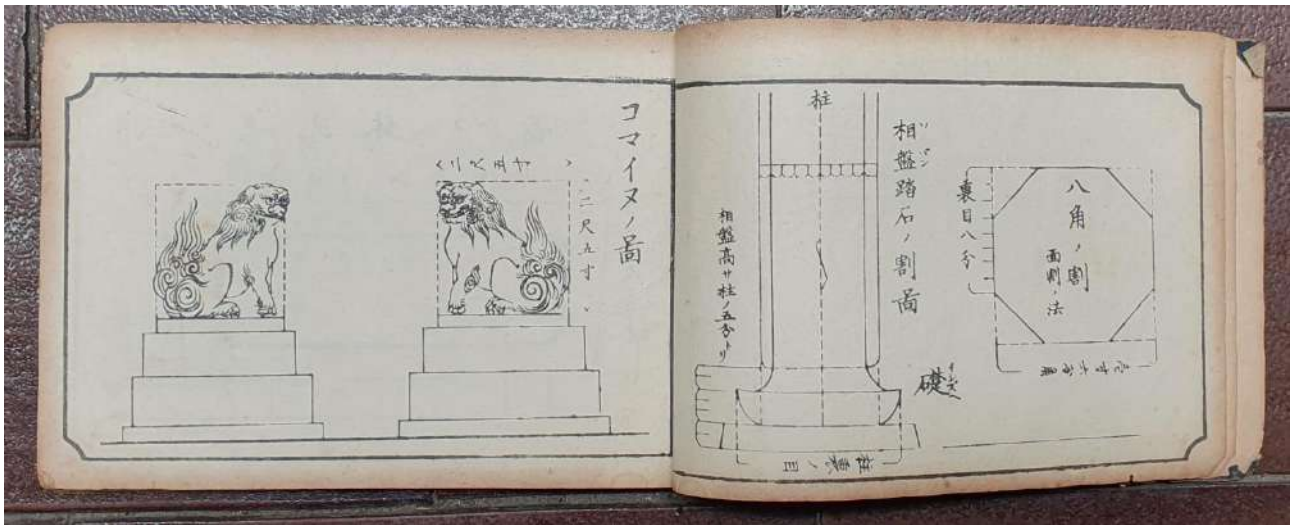 八角ノ割
面割ノ法
裏目八分
相盤踏石ノ割圖
礎
柱
相盤高サ柱ノ五分トリ
柱裏ノ目
コマイヌノ圖
二尺五寸
二尺五寸